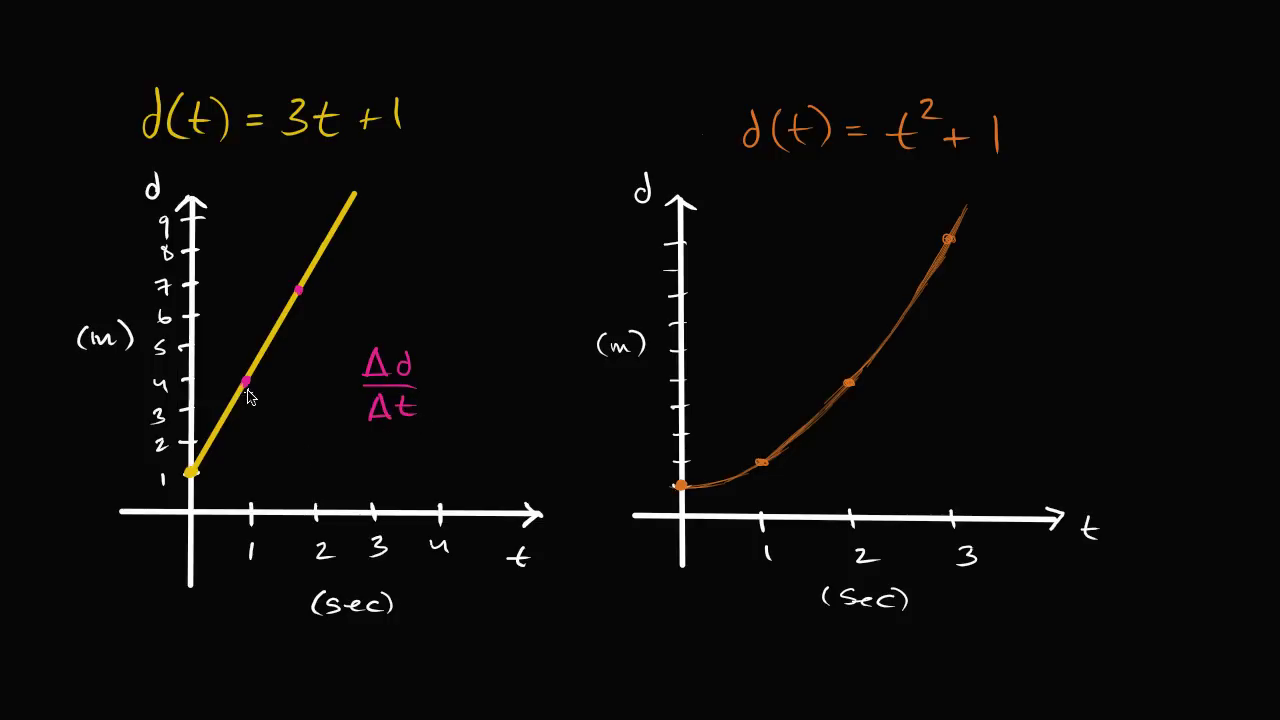 d(t) = 3t + 1
d
9
8
7
6
(m)
5
4
3
2
1
Δd
Δt
1 2 3 4 t
(sec)
d(t) = t² + 1
d
(m)
1 2 3 t
(sec)